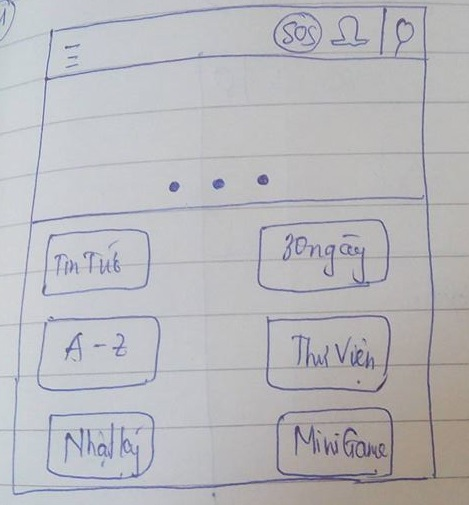 1
SOS
Tin Tức
30 ngày
A - Z
Thư Viện
Nhật ký
Mini Game